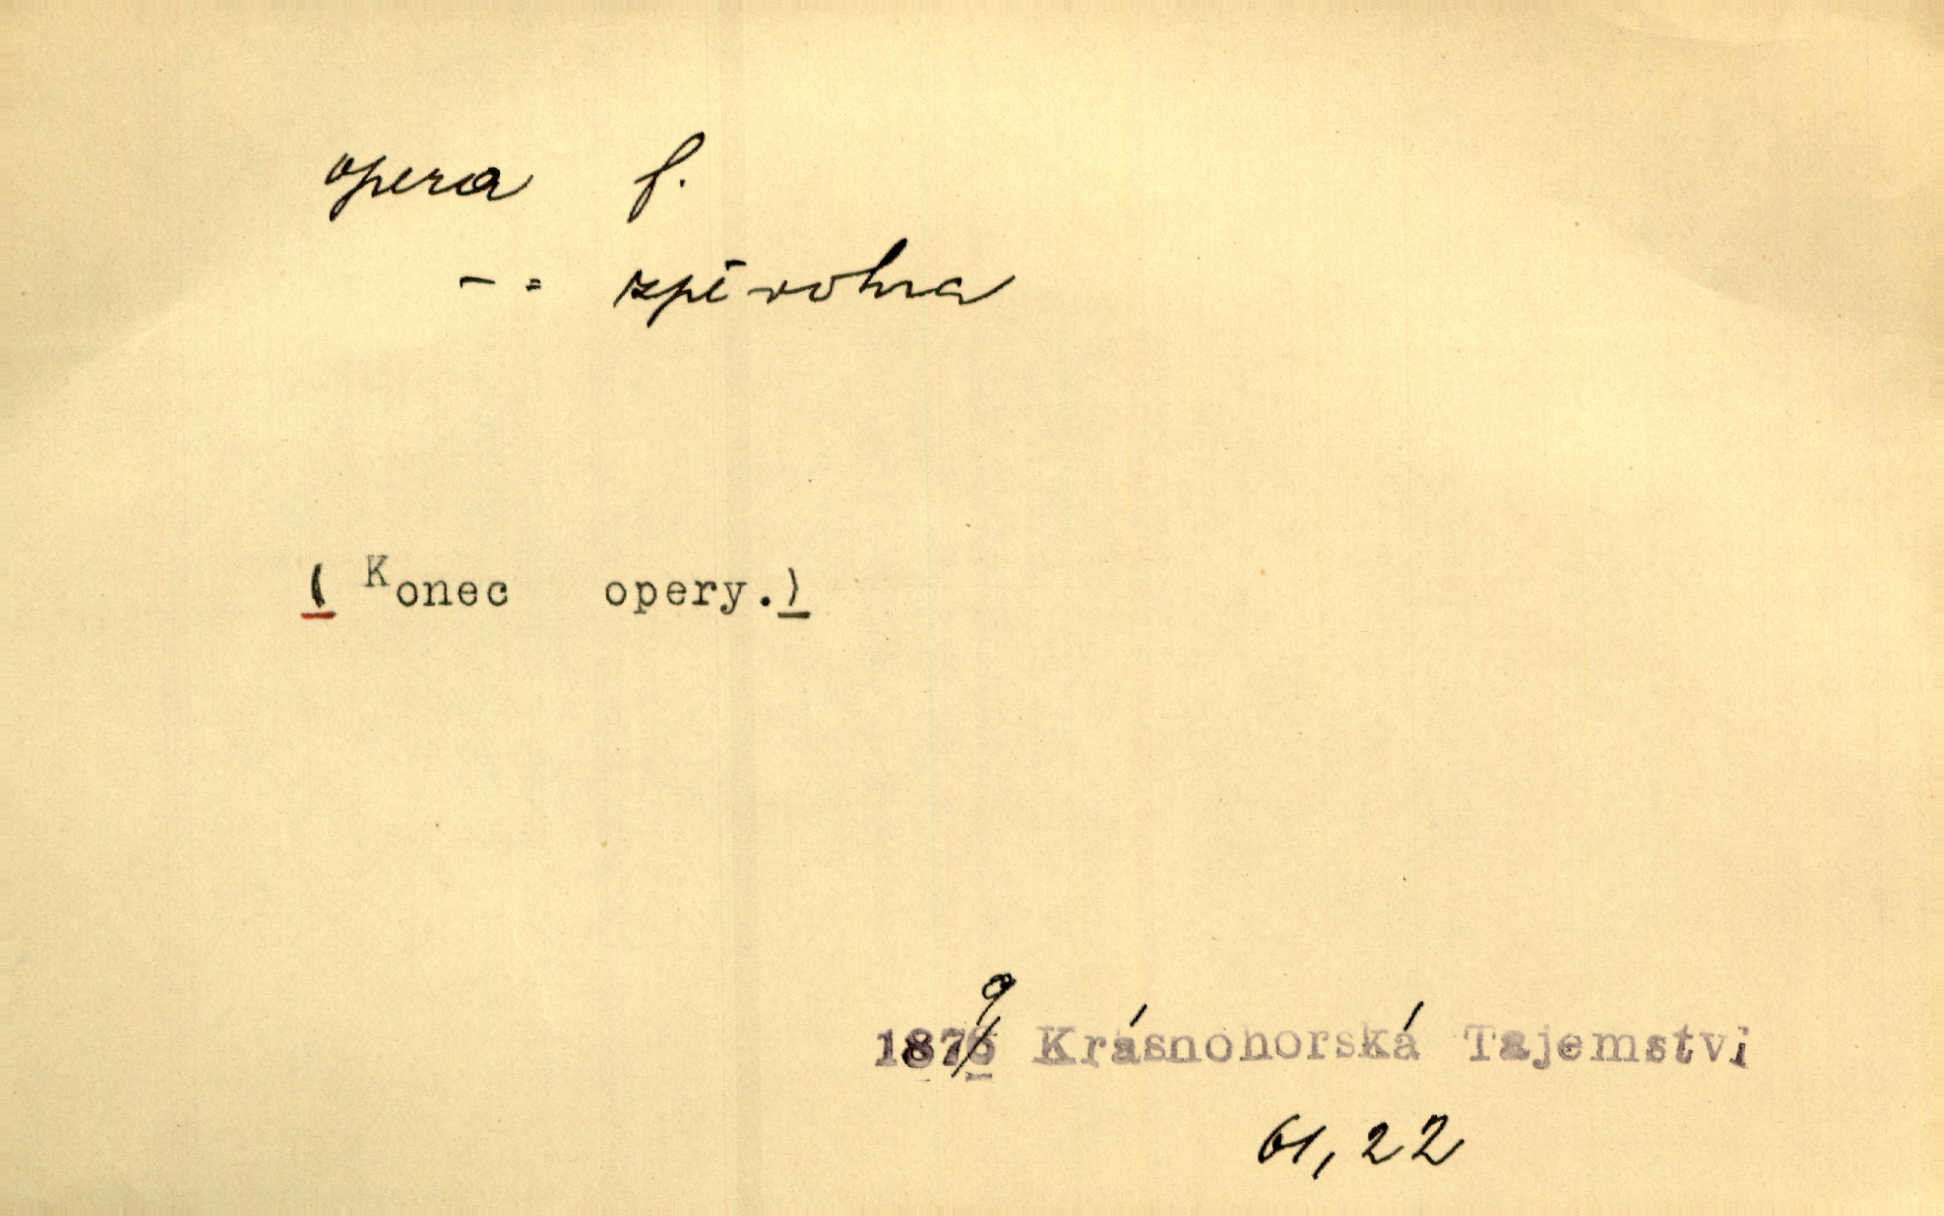 opera f.
-= zpěvohra
( Konec opery.)
1879 Krásnohorská Tajemství
61,22